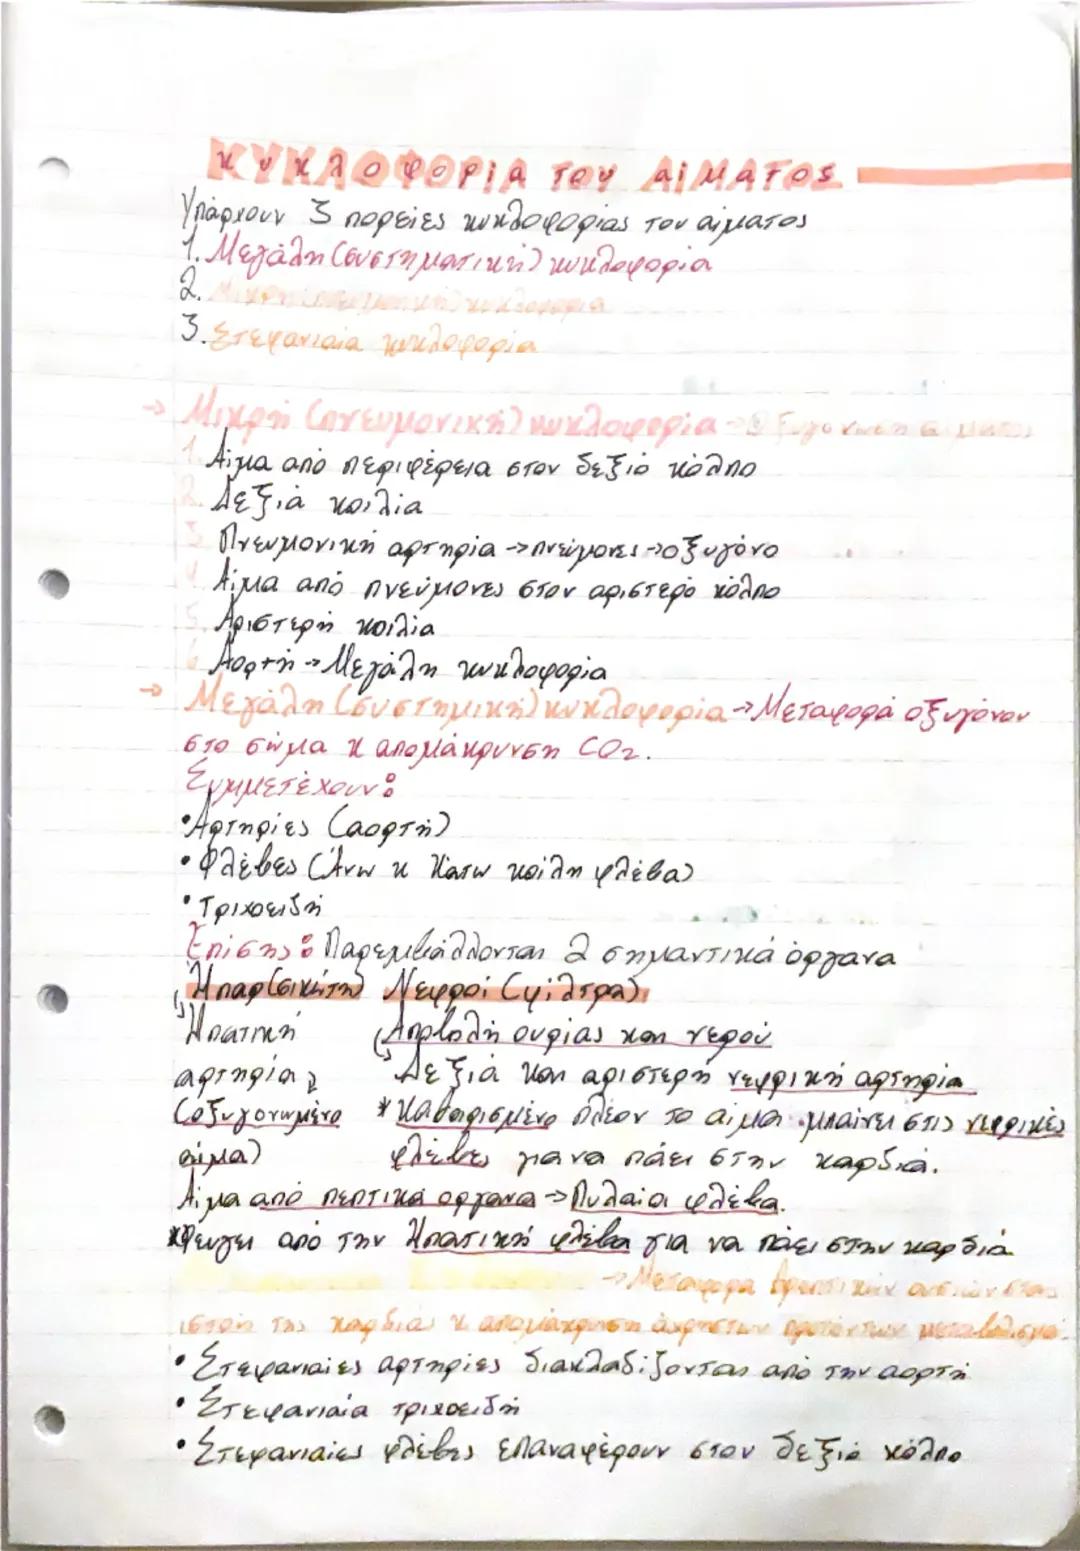 ΚΥΚΛΟΦΟΡΙΑ ΤΟΥ ΑΙΜΑΤΟΣ
Υπάρχουν 3 πορείες κυκλοφορίας του αίματος
1. Μεγάλη (συστηματική) κυκλοφορία
2. Μικρή (πνευμονική) κυκλοφορία
3. Στεφανιαία κυκλοφορία
→ Μικρή (πνευμονική) κυκλοφορία → Οξυγόνωση αίματος
1. Αίμα από περιφέρεια στον δεξιό κόλπο
2. Δεξιά κοιλία
3. Πνευμονική αρτηρία → πνεύμονες → οξυγόνο
4. Αίμα από πνεύμονες στον αριστερό κόλπο
5. Αριστερή κοιλία
6. Αορτή → Μεγάλη κυκλοφορία
→ Μεγάλη (συστημική) κυκλοφορία → Μεταφορά οξυγόνου
στο σώμα κ απομάκρυνση CO2.
Συμμετέχουν:
• Αρτηρίες (αορτή)
• Φλέβες (Άνω κ Κάτω κοίλη φλέβα)
• Τριχοειδή
Επίσης: Παρεμβάλλονται 2 σημαντικά όργανα
Ήπαρ (σικώτη) Νεφροί (φίλτρα)
Ηπατική Αποβολή ουρίας και νερού
αρτηρία Δεξιά και αριστερή νεφρική αρτηρία
(οξυγονωμένο * Καθαρισμένο πλέον το αίμα μπαίνει στις νεφρικές
αίμα) φλέβες για να πάει στην καρδιά.
Αίμα από πεπτικά όργανα → Πυλαία φλέβα.
* Φεύγει από την Ηπατική φλέβα για να πάει στην καρδιά
→ Μεταφορά θρεπτικών ουσιών στον
ιστό της καρδιάς κ απομάκρυνση άχρηστων προϊόντων μεταβολισμού.
• Στεφανιαίες αρτηρίες διακλαδίζονται από την αορτή
• Στεφανιαία τριχοειδή
• Στεφανιαίες φλέβες επαναφέρουν στον δεξιό κόλπο